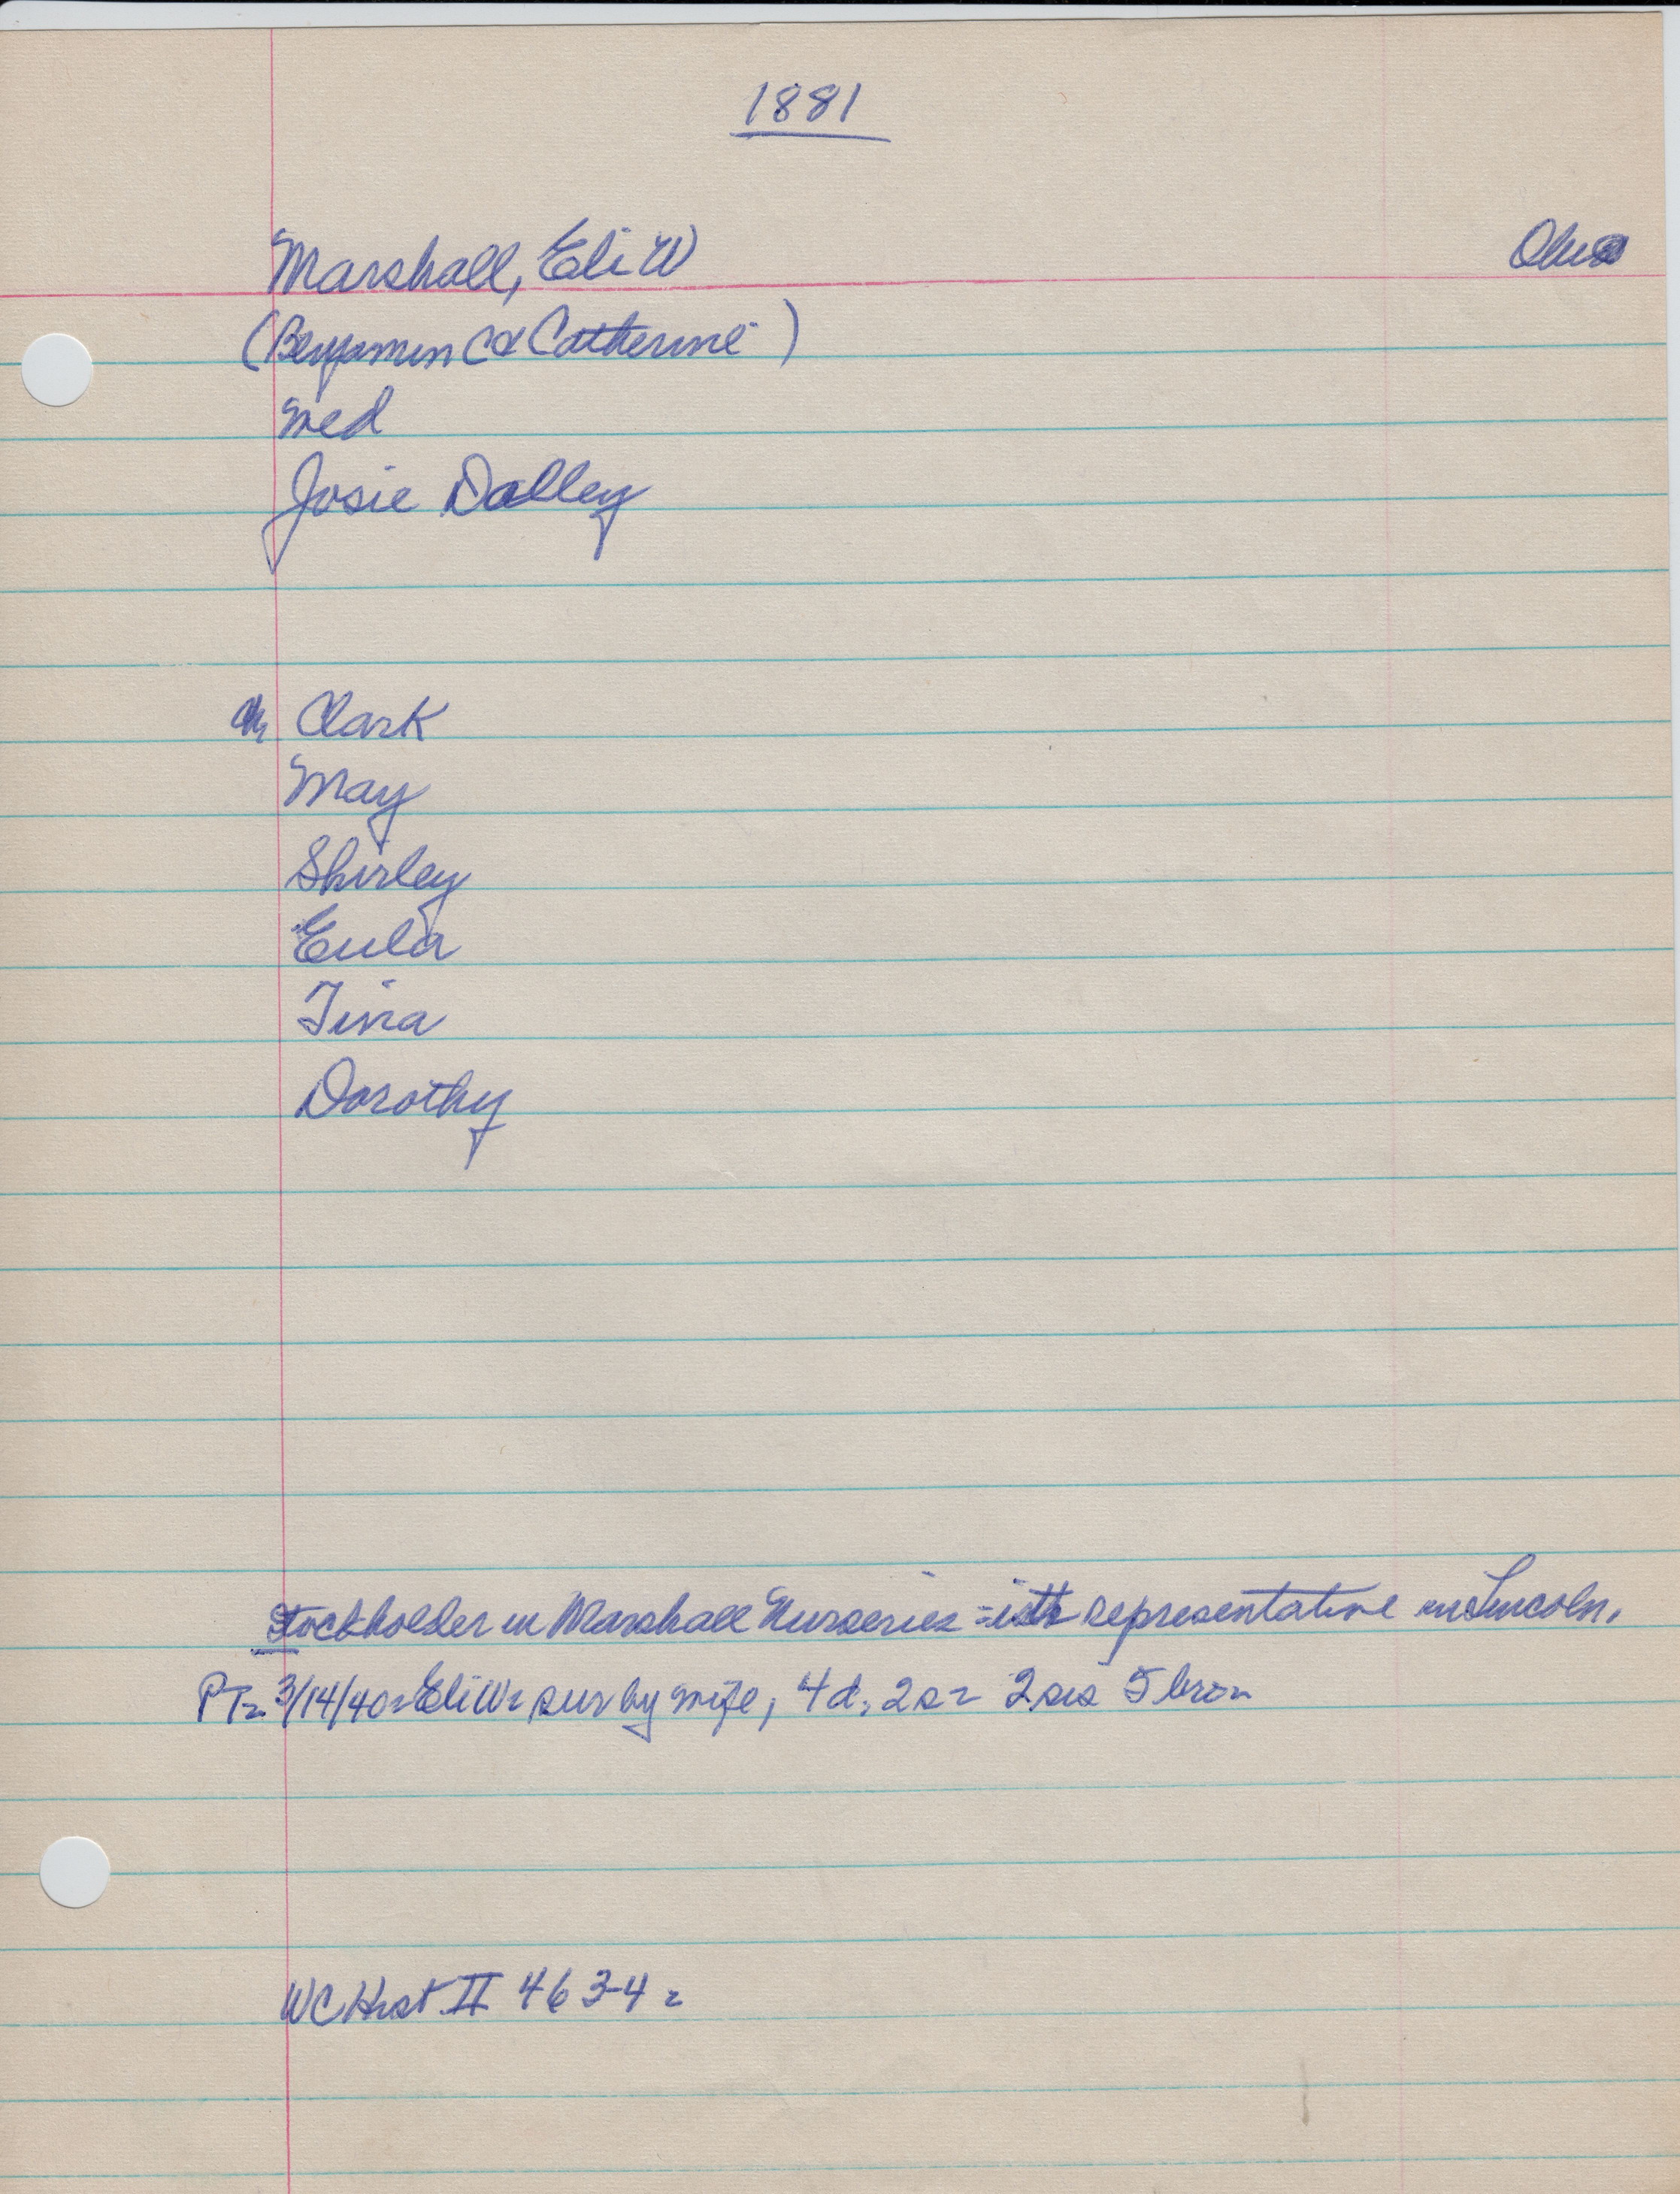 1881
Marshall, Eli W Ohio
(Benjamin C & Catherine)
wed
Josie Dalley
ch Clark
May
Shirley
Eula
Tina
Dorothy
Stockholder in Marshall Nurseries = its representative in Lincoln.
PT= 3/14/40= Eli W= sur by wife, 4 d, 2 s= 2 sis 5 bro=
WC Hist II 463-4=